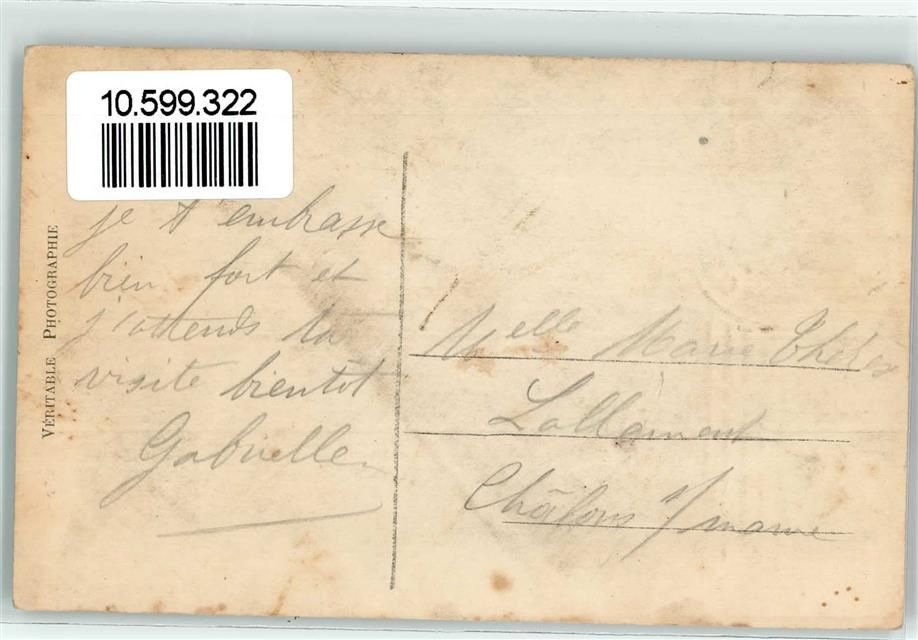 10.599.322
VÉRITABLE PHOTOGRAPHIE
je t'embrasse
bien fort et
j'attends ta
visite bientôt
Gabrielle
Melle Marie Thérèse
Lallement
Châlons s/marne